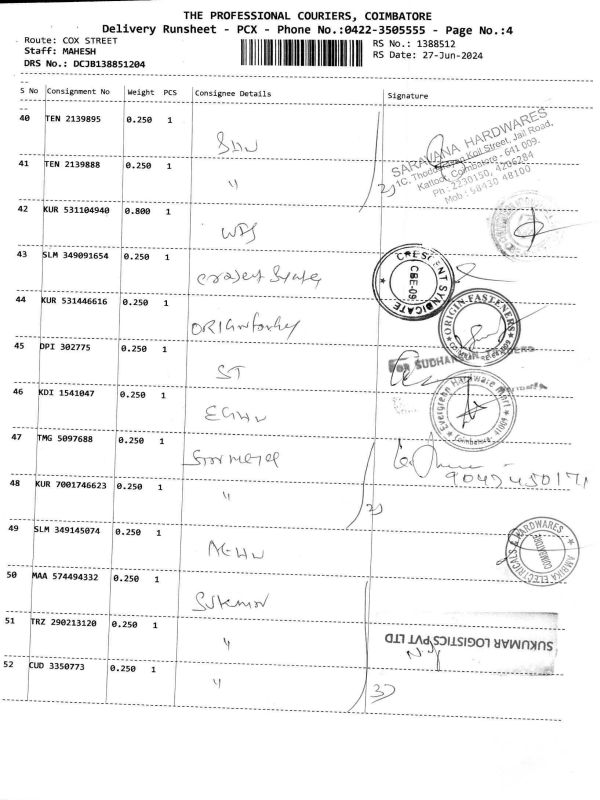 THE PROFESSIONAL COURIERS, COIMBATORE
Delivery Runsheet - PCX - Phone No.:0422-3505555 - Page No.:4
Route: COX STREET
Staff: MAHESH
DRS No.: DCJB138851204
RS No.: 1388512
RS Date: 27-Jun-2024
S No Consignment No Weight PCS Consignee Details Signature
40 TEN 2139895 0.250 1
SARAVANA HARDWARES
Jail Road,
Kattoor, Coimbatore - 641 009.
Ph : 2230150, 4206284
Mob : 98430 48100
41 TEN 2139888 0.250 1 "
42 KUR 531104940 0.800 1
43 SLM 349091654 0.250 1
CRESCENT SYNDICATE
CBE-09
44 KUR 531446616 0.250 1
ORIGIN FASTENERS
45 DPI 302775 0.250 1 ST
For SUDHA
46 KDI 1541047 0.250 1 EGHW
Evergreen Hardware Mart
Coimbatore
47 TMG 5097688 0.250 1
48 KUR 7001746623 0.250 1 "
49 SLM 349145074 0.250 1 AEHW
AMBIKA ELECTRICALS & HARDWARES
COIMBATORE
50 MAA 574494332 0.250 1
51 TRZ 290213120 0.250 1 "
SUKUMAR LOGISTICS PVT LTD
52 CUD 3350773 0.250 1 "